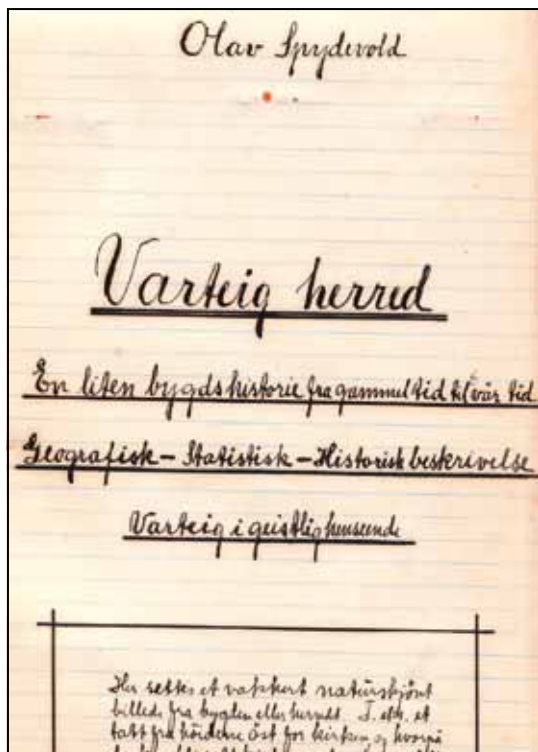 Olav Spydevold
Varteig herred
En liten bygdshistorie fra gammel tid til vår tid
Geografisk – Statistisk – Historisk beskrivelse
Varteig i geistlig henseende
Her settes et vakkert naturskjönt
billede fra bygden eller herredet. T. eks. et
tatt fra höidene öst for kirken og hvorpå